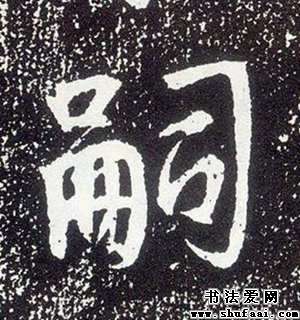 嗣
书法爱网
www.shufaai.com